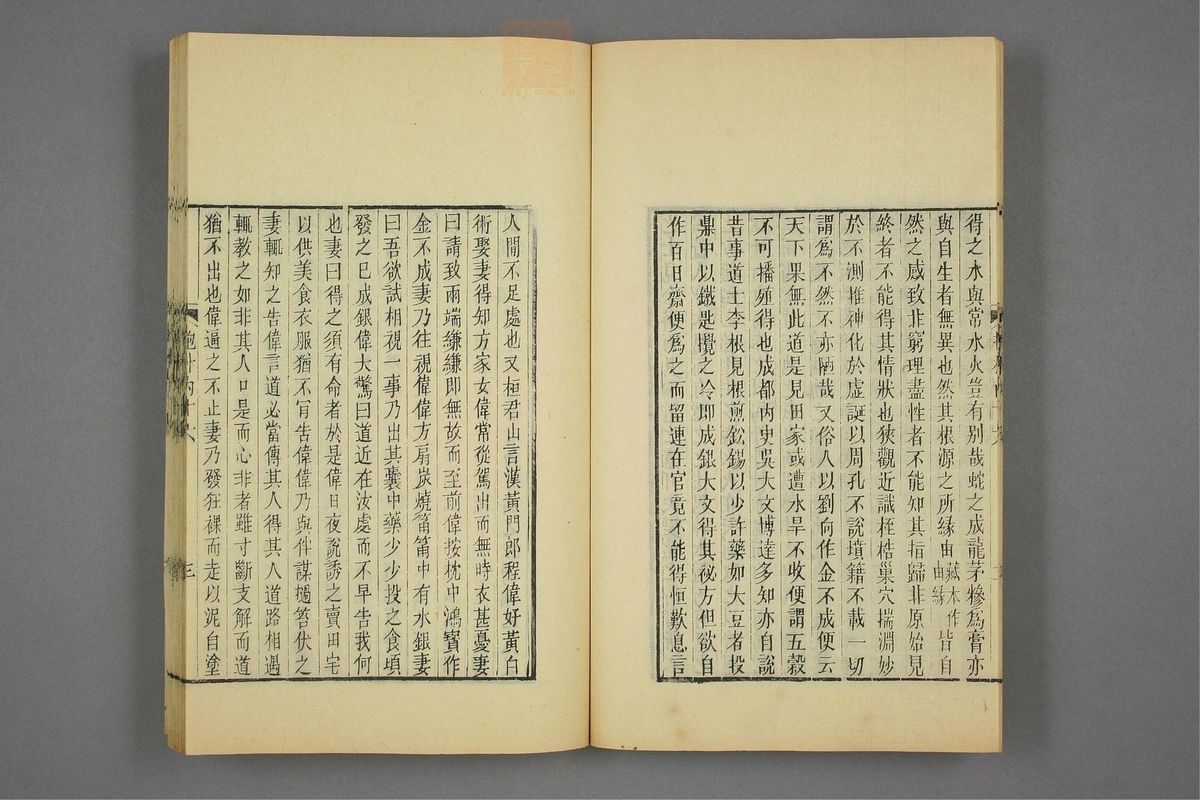 得之水與常水火豈有別哉蛇之成龍茅糝爲膏亦
與自生者無異也然其根源之所緣由藏本作由緣皆自
然之感致非窮理盡性者不能知其指歸非原始見
終者不能得其情狀也狹觀近識桎梏巢穴揣淵妙
於不測推神化於虛誕以周孔不說墳籍不載一切
謂爲不然不亦陋哉又俗人以劉向作金不成便云
天下果無此道是見田家或遭水旱不收便謂五穀
不可播殖得也成都內史吳大文博達多知亦自說
昔事道士李根見根煎鉛錫以少許藥如大豆者投
鼎中以鐵匙攪之冷即成銀大文得其祕方但欲自
作百日齋便爲之而留連在官竟不能得恒歎息言
人間不足處也又桓君山言漢黃門郎程偉好黃白
術娶妻得知方家女偉常從駕出而無時衣甚憂妻
曰請致兩端縑縑即無故而至前偉按枕中鴻寶作
金不成妻乃往視偉偉方扇炭燒筩筩中有水銀妻
曰吾欲試相視一事乃出其囊中藥少少投之食頃
發之已成銀偉大驚曰道近在汝處而不早告我何
也妻曰得之須有命者於是偉日夜說誘之賣田宅
以供美食衣服猶不肎告偉偉乃與伴謀撾笞伏之
妻輒知之告偉言道必當傳其人得其人道路相遇
輒教之如非其人口是而心非者雖寸斷支解而道
猶不出也偉逼之不止妻乃發狂裸而走以泥自塗
三